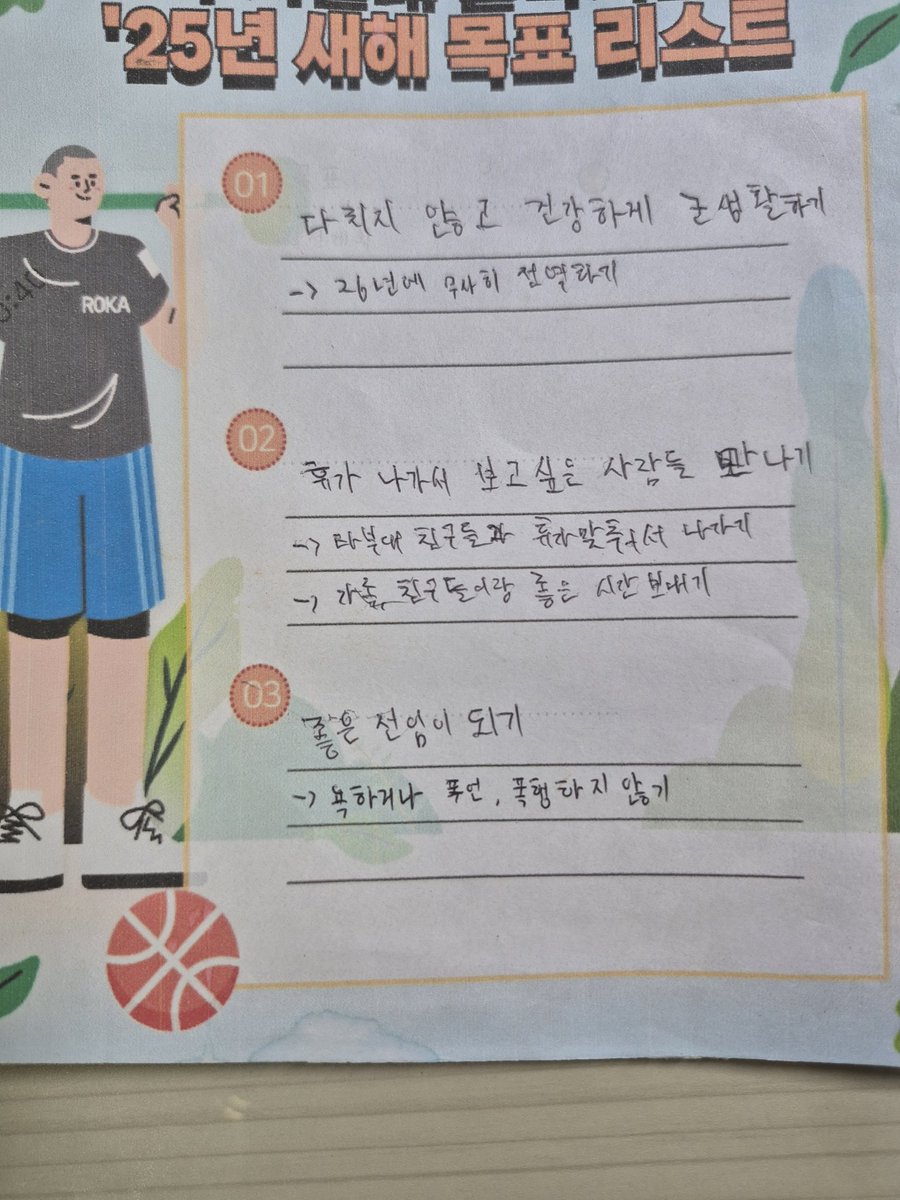 '25년 새해 목표 리스트
ROKA
01
다치지 않고 건강하게 군생활하기
-> 26년에 무사히 전역하기
02
휴가 나가서 보고싶은 사람들 만나기
-> 타부대 친구들과 휴가맞춰서 나가기
-> 가족, 친구들이랑 좋은 시간 보내기
03
좋은 선임이 되기
-> 욕하거나 폭언, 폭행하지 않기